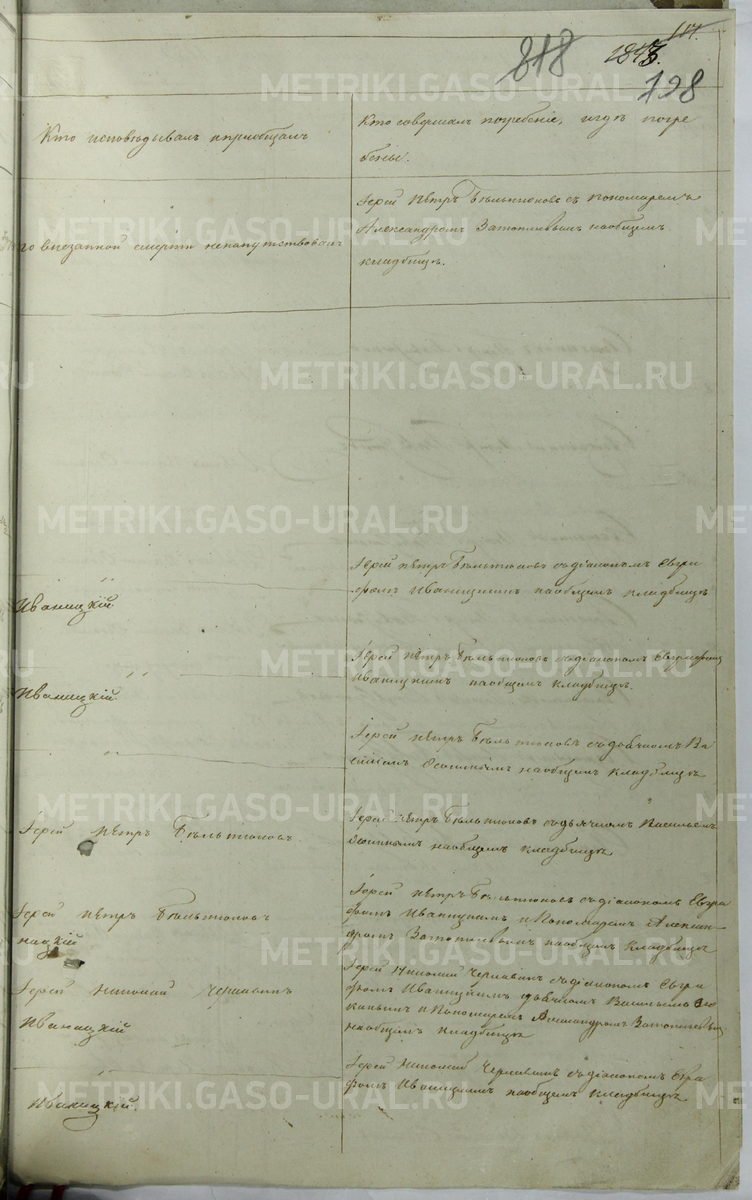 117.
818
1843.
198
Кто исповѣдывалъ и приобщалъ
Кто совершалъ погребеніе, и гдѣ погре
бены.
по внезапной смерти ненапутствованъ
Іерей Петръ Бѣльтюковъ съ пономаремъ
Александромъ наобщемъ
кладбищѣ.
Іерей Петръ Бѣльтюковъ съдіакономъ Евгра
фомъ Иваницкимъ наобщемъ кладбищѣ
Иваницкій.
Іерей Петръ Бѣльтюковъ съдіакономъ Евграфомъ
Иваницкимъ наобщемъ кладбищѣ.
Иваницкій.
Іерей Петръ Бѣльтюковъ съдьячкомъ Ва
силіемъ наобщемъ кладбищѣ
Іерей Петръ Бѣльтюковъ
Іерей Петръ Бѣльтюковъ съдьячкомъ Васильемъ
наобщемъ кладбищѣ
Іерей Петръ Бѣльтюковъ
ницкій
Іерей Петръ Бѣльтюковъ съдіакономъ Евгра
фомъ Иваницкимъ и Пономаремъ Алексан
дромъ наобщемъ кладбищѣ
Іерей Николай Чернавинъ
Иваницкій
Іерей Николай Чернавинъ съдіакономъ Евгра
фомъ Иваницкимъ дьячкомъ Васильемъ
и Пономаремъ Александромъ
наобщемъ кладбищѣ
Иваницкій.
Іерей Николай Чернавинъ съдіакономъ Евгра
фомъ Иваницкимъ наобщемъ кладбищѣ
METRIKI.GASO-URAL.RU